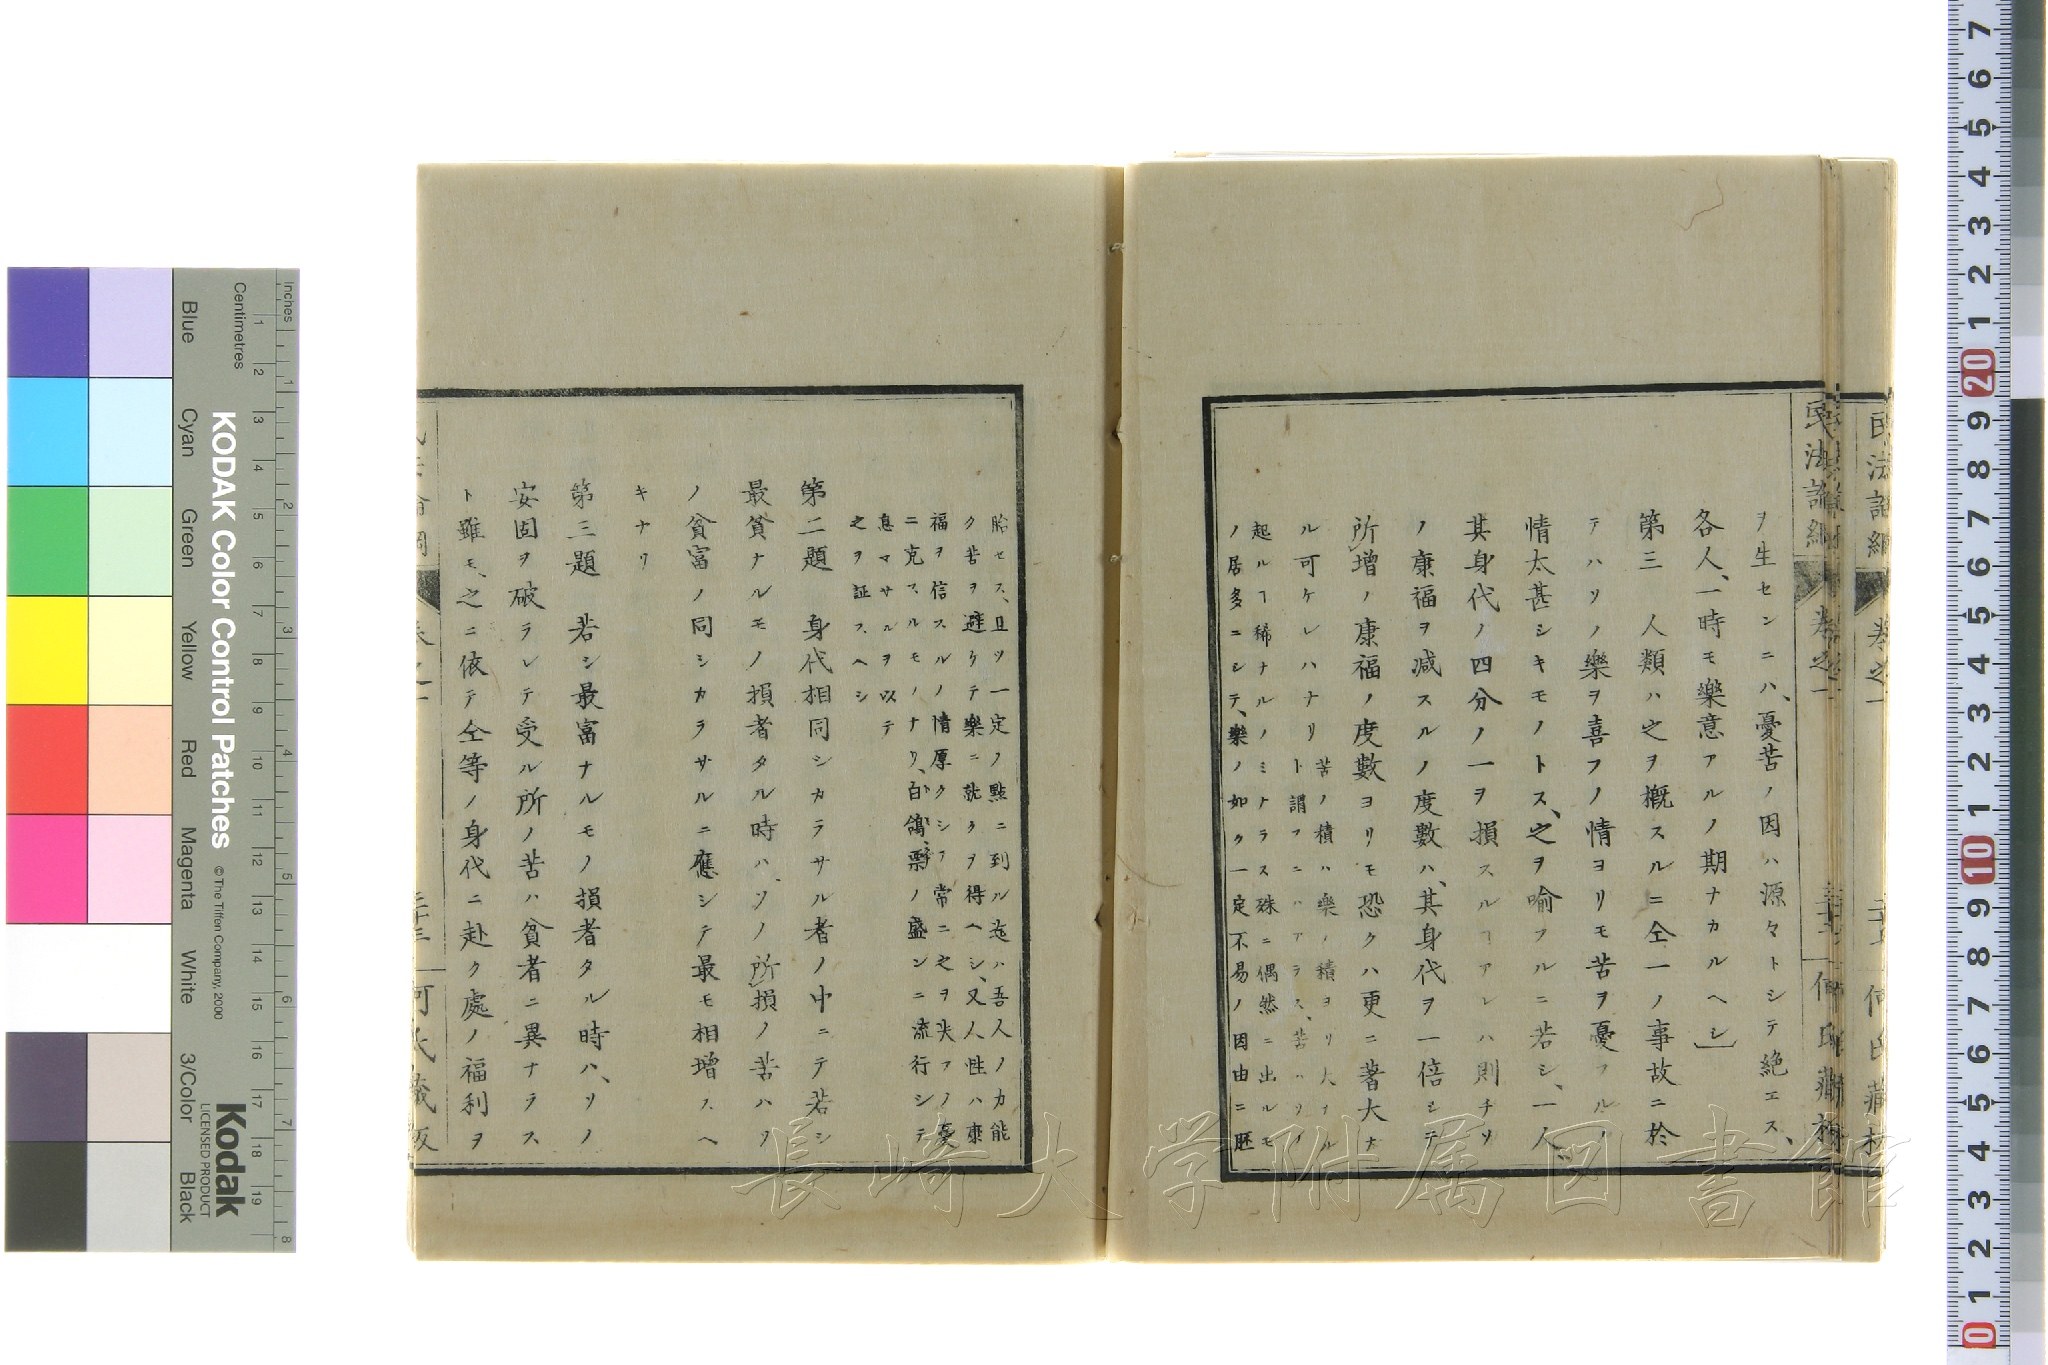 ヲ生センニハ、憂苦ノ因ハ源々トシテ絶エス、
各人、一時モ樂意アルノ期ナカルヘシ」
第三　人類ハ之ヲ概スルニ仝一ノ事故ニ於
テハソノ樂ヲ喜フノ情ヨリモ苦ヲ憂フルノ
情太甚シキモノトス、之ヲ喩フルニ若シ、一人
其身代ノ四分ノ一ヲ損スルヿアレハ則チソ
ノ康福ヲ減スルノ度數ハ、其身代ヲ一倍シテ
所增ノ康福ノ度數ヨリモ恐クハ更ニ著大ナ
ル可ケレハナリ
苦ノ積ハ樂ノ積ヨリ大ナル
ト謂フニハアラス、苦ハソノ
起ルヿ稀ナルノミナラス殊ニ偶然ニ出ルモ
ノ居多ニシテ、樂ノ如ク一定不易ノ因由ニ胚
胎セス、且ツ一定ノ點ニ到ル迄ハ吾人ノカ能
ク苦ヲ避ケテ樂ニ就クヲ得ヘシ、又人性ハ爽
福ヲ信スルノ情厚クシテ常ニ之ヲ失フノ憂
ニ克スルモノナリ、白鴿票ノ盛ンニ流行シテ
息マサルヲ以テ
之ヲ証スヘシ
第二題　身代相同シカラサル者ノ中ニテ若シ
最貧ナルモノ損者タル時ハ、ソノ所損ノ苦ハソ
ノ貧富ノ同シカラサルニ應シテ最モ相增スヘ
キナリ
第三題　若シ最富ナルモノ損者タル時ハ、ソノ
安固ヲ破ラレテ受ル所ノ苦ハ貧者ニ異ナラス
ト雖モ、之ニ依テ仝等ノ身代ニ赴ク處ノ福利ヲ
民法論綱
卷之一
何氏藏板
長崎大学附属図書館
KODAK Color Control Patches
© The Tiffen Company, 2000
Kodak
LICENSED PRODUCT
Inches
Centimetres
Blue
Cyan
Green
Yellow
Red
Magenta
White
3/Color
Black